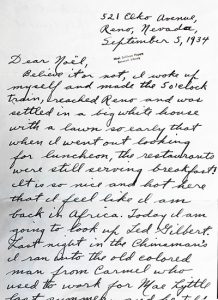 521 Elko Avenue,
Reno, Nevada,
September 5, 1934
Dear Noël,
Believe it or not, I woke up
myself and made the 5 o'clock
train, reached Reno and was
settled in a big white house
with a lawn so early that
when I went out looking
for luncheon, the restaurants
were still serving breakfast!
It is so nice and hot here
that I feel like I am
back in Africa. Today I am
going to look up Ted Gilbert.
Last night in the Chinaman's
I ran into the old colored
man from Carmel who
used to work for Mae Lyttle
last summer and he